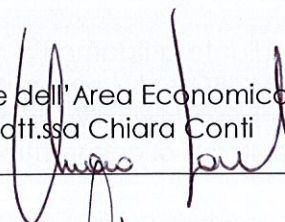 e dell'Area Economico
ott.ssa Chiara Conti